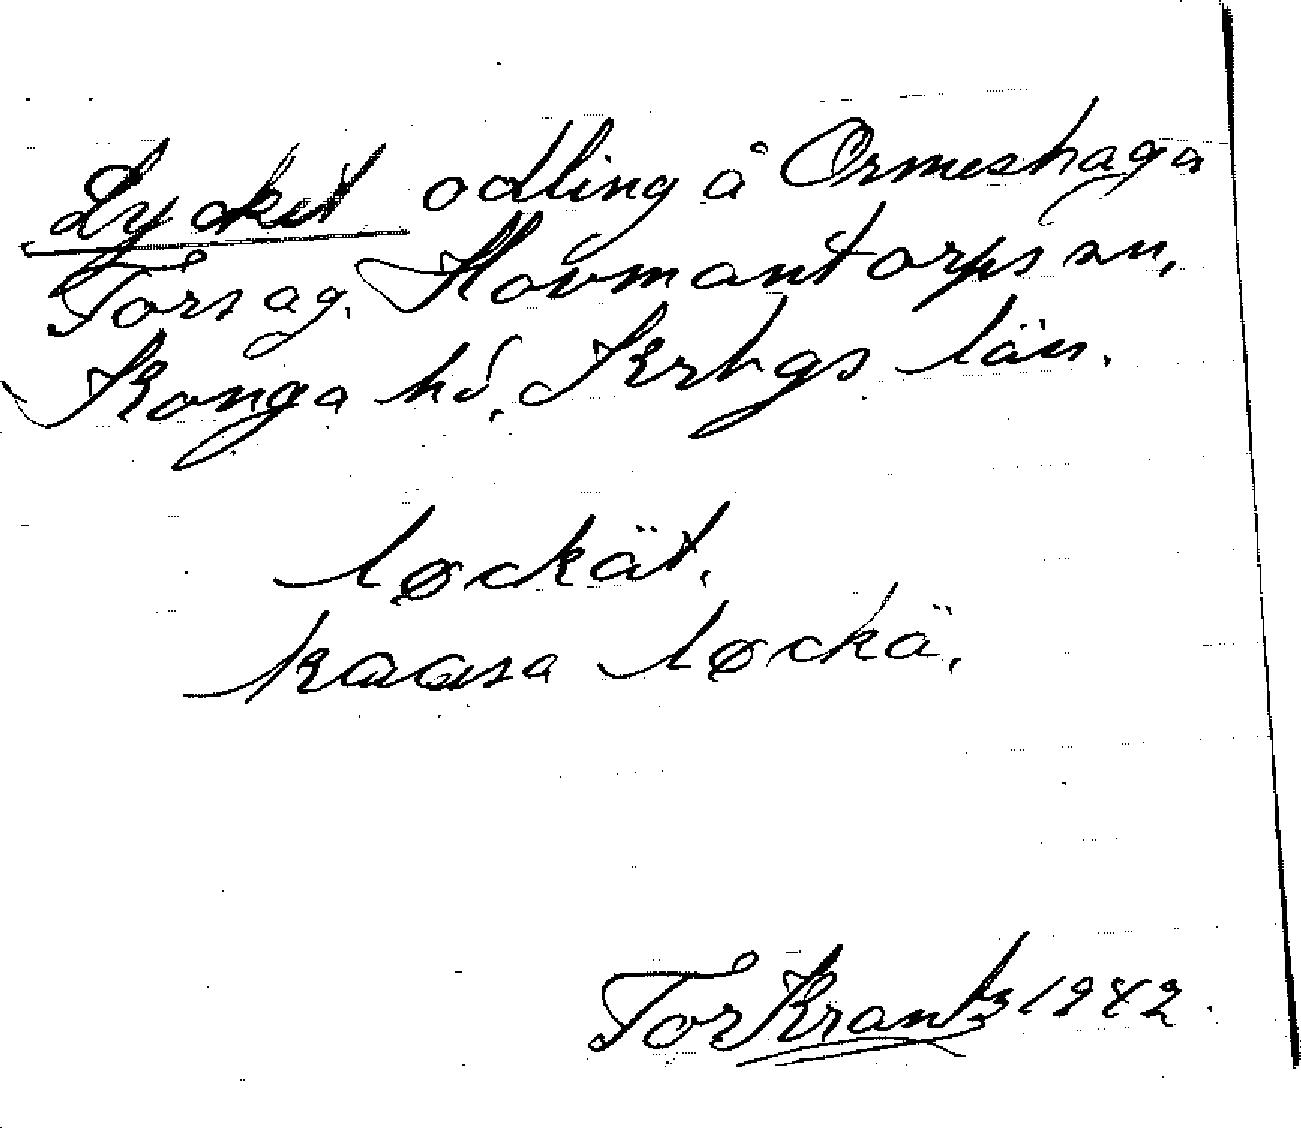 Lycket odling å Ormeshaga
Torsag. Hovmantorps sn,
Konga hd. Krbgs län.
løckät.
kaasa løckä,
Tor Krantz 1942.